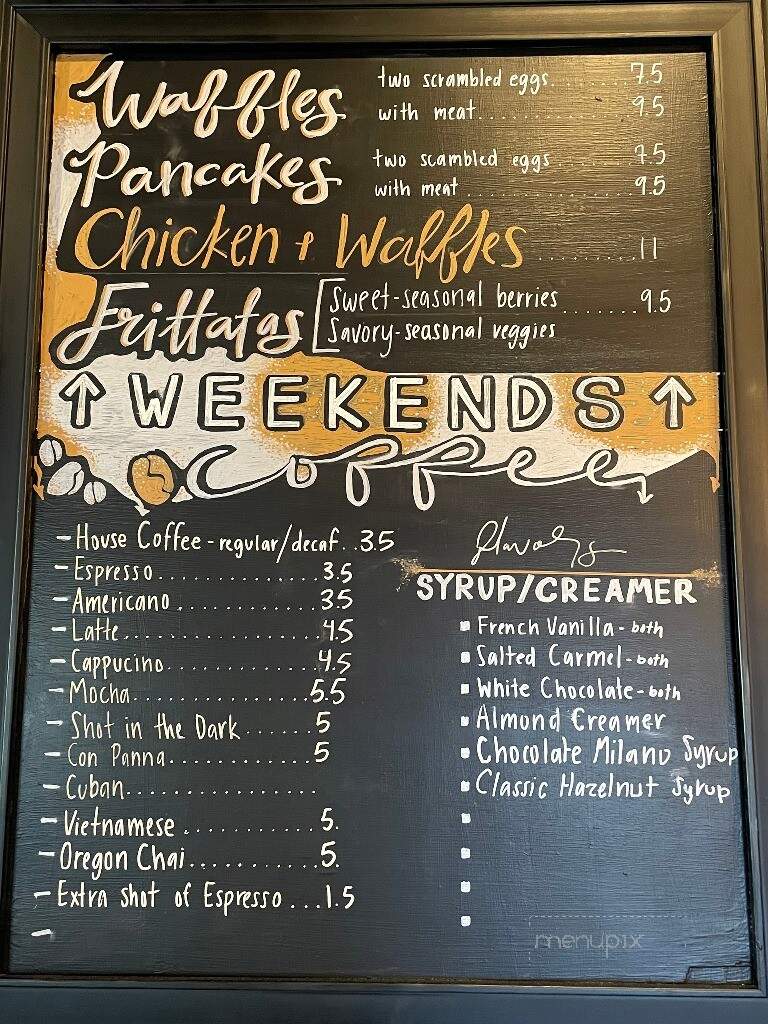 Waffles two scrambled eggs. ....... 7.5
with meat.............. 9.5
Pancakes two scambled eggs ....... 7.5
with meat ............... 9.5
Chicken + Waffles ......... 11
Frittatas [Sweet-seasonal berries ....... 9.5
Savory-seasonal veggies
↑ WEEKENDS ↑
Coffee
- House Coffee - regular/decaf..3.5
- Espresso............... 3.5
- Americano ............. 3.5
- Latte.................. 4.5
- Cappucino.............. 4.5
- Mocha.................. 5.5
- Shot in the Dark ...... 5
- Con Panna.............. 5
- Cuban..................
- Vietnamese ............ 5.
- Oregon Chai............ 5.
- Extra shot of Espresso ...1.5
-
Flavors
SYRUP/CREAMER
▪ French Vanilla - both
▪ Salted Carmel - both
▪ White Chocolate - both
▪ Almond Creamer
▪ Chocolate Milano Syrup
▪ Classic Hazelnut Syrup
▪
▪
▪
▪
menupix